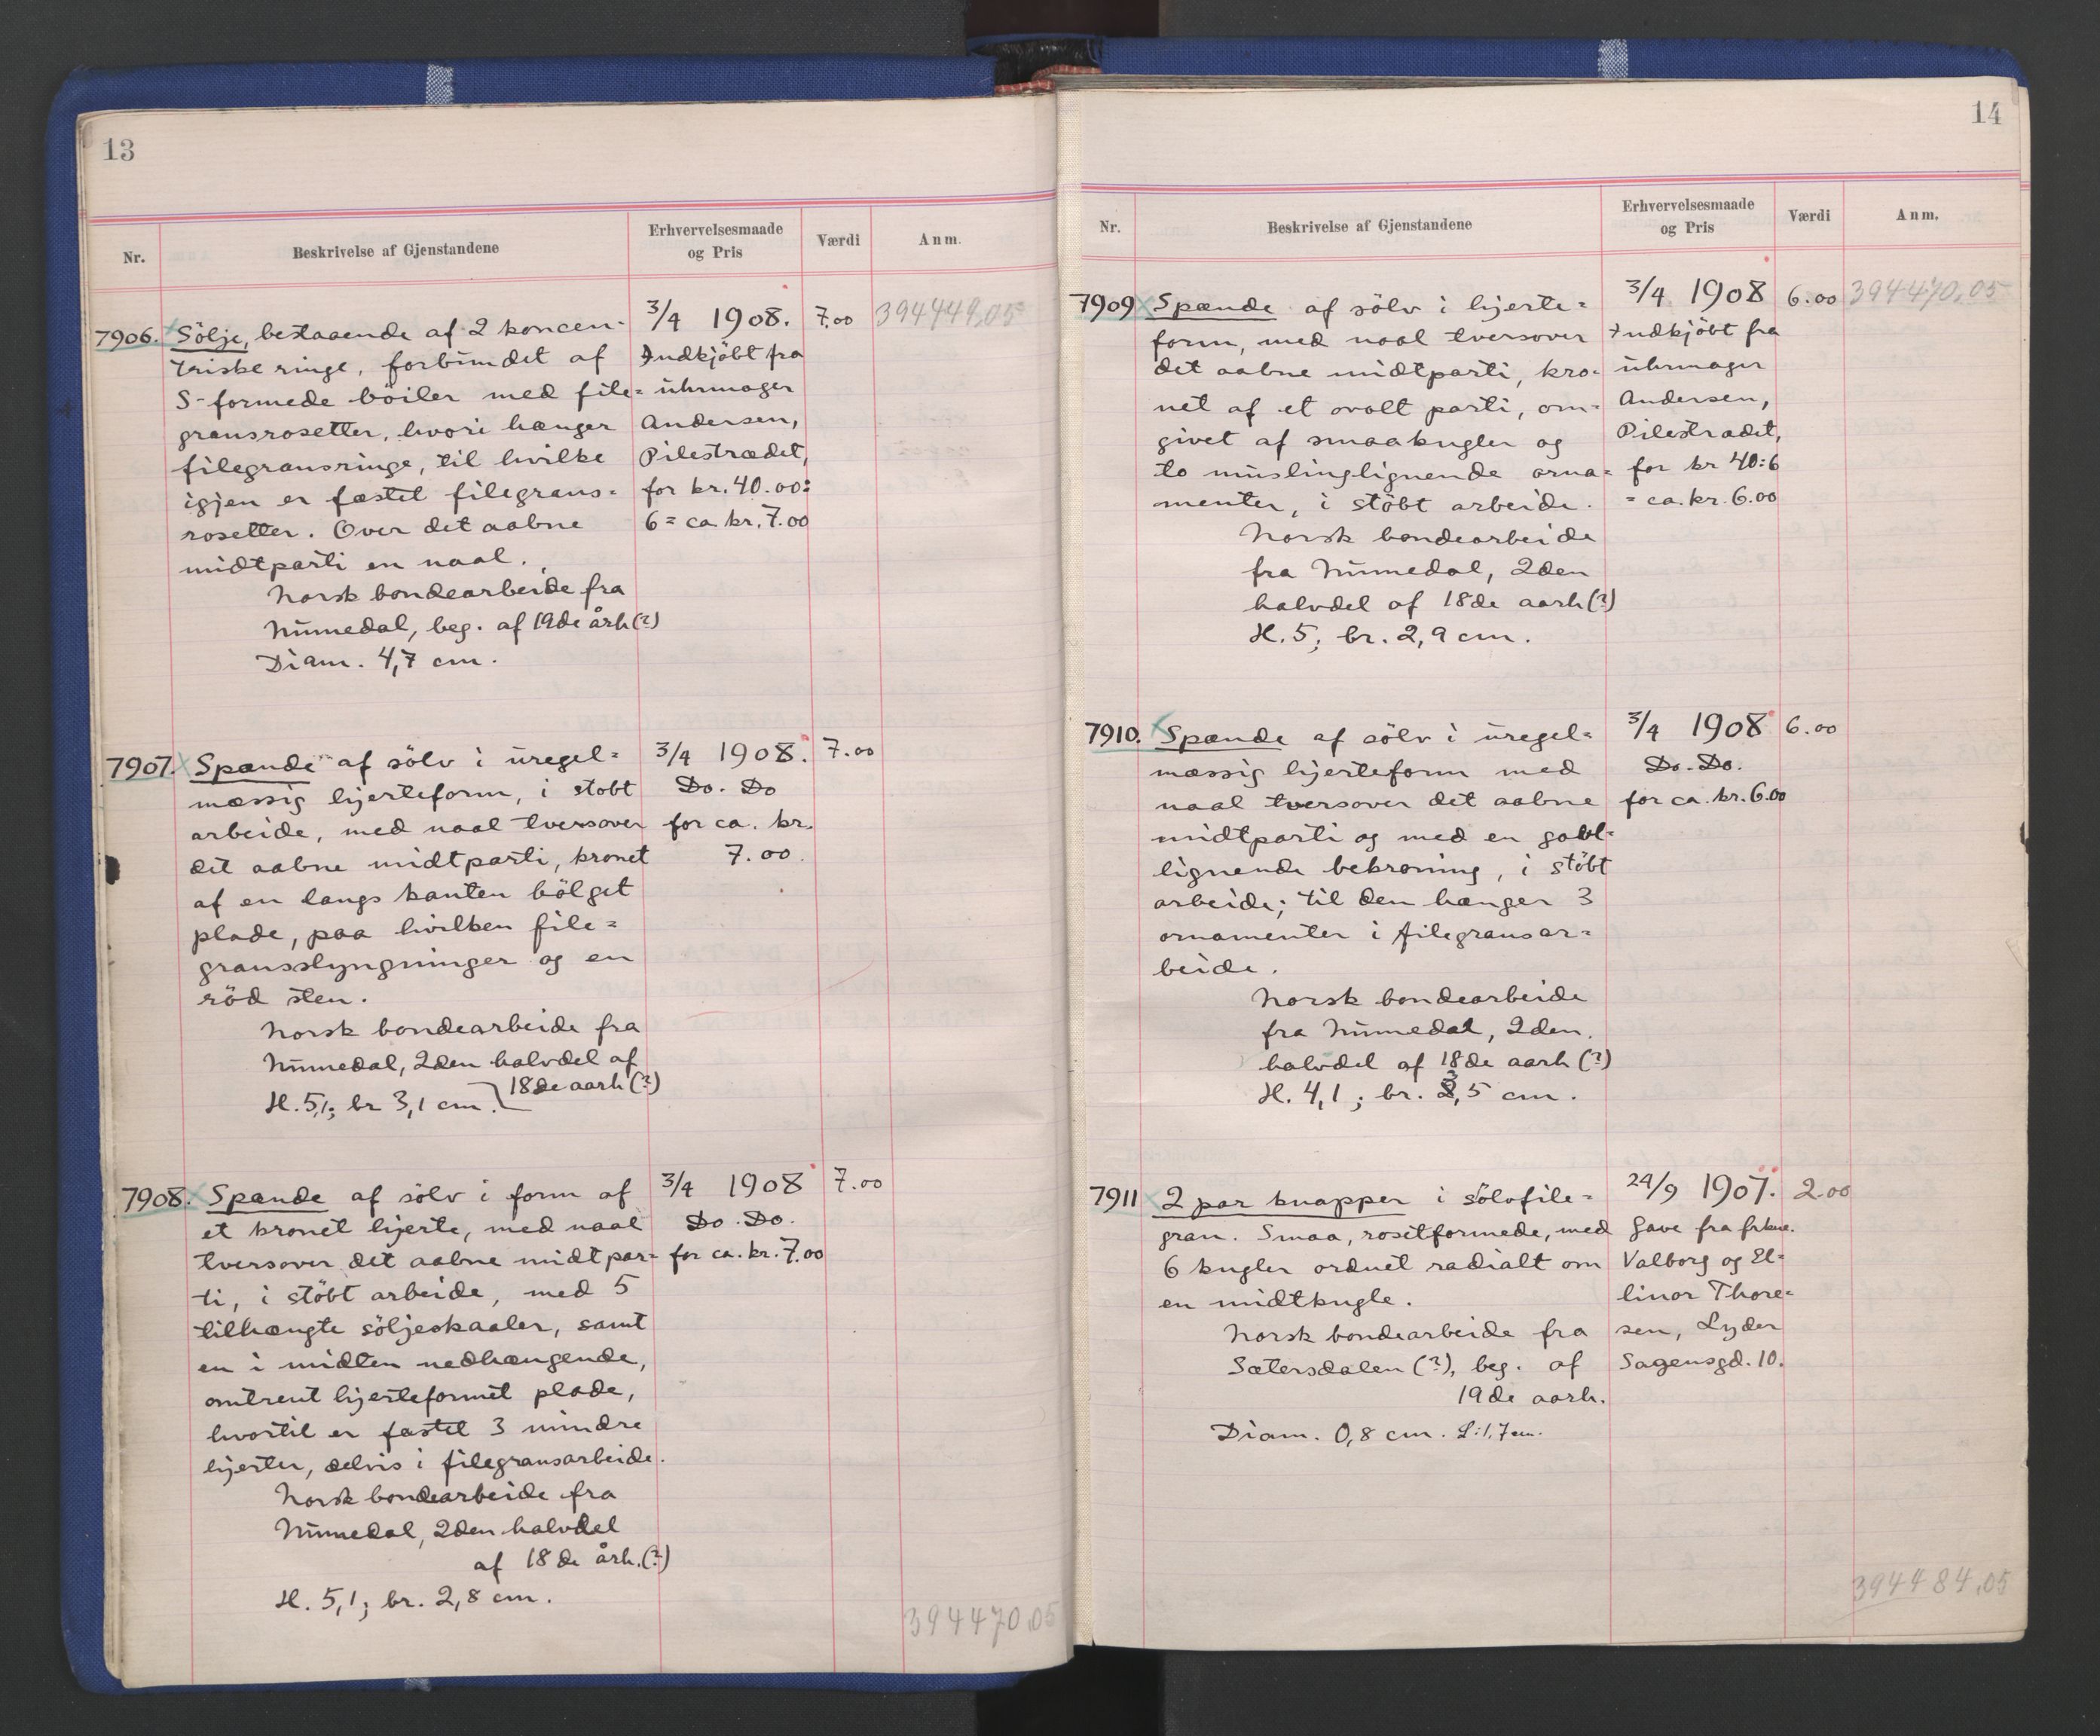 13
Nr.
Beskrivelse af Gjenstandene
Erhvervelsesmaade
og Pris
Værdi
Anm.
7906. Sölje, bestaaende af 2 koncen-
triske ringe, forbundet af
S-formede böiler med file=
gransrosetter, hvori hænger
filegransringe, til hvilke
igjen er fæstet filegrans=
rosetter. Over det aabne
midtparti en naal.
Norsk bondearbeide fra
Numedal, beg. af 19de årh (?)
Diam. 4,7 cm.
3/4 1908.
Indkjöbt fra
uhrmager
Andersen,
Pilestrædet,
for kr. 40.00:
6 = ca kr. 7.00
7.00
394449,05
7907. Spænde af sölv i uregel=
mæssig hjerteform, i stöbt
arbeide, med naal tversover
det aabne midtparti, kronet
af en langs kanten bölget
plade, paa hvilken file=
gransslyngninger og en
röd sten.
Norsk bondearbeide fra
Numedal, 2den halvdel af
18de aarh (?)
H. 5,1; br 3,1 cm.
3/4 1908.
Do. Do
for ca. kr.
7.00.
7.00
7908. Spænde af sölv i form af
et kronet hjerte, med naal
tversover det aabne midtpar=
ti, i stöbt arbeide, med 5
tilhængte söljeskaaler, samt
en i midten nedhængende,
omtrent hjerteformet plade,
hvortil er fæstet 3 mindre
hjerter, delvis i filegransarbeide.
Norsk bondearbeide fra
Numedal, 2den halvdel
af 18de årh. (?)
H. 5,1; br. 2,8 cm.
3/4 1908
Do. Do.
for ca. kr. 7.00
7.00
394470.05
14
Nr.
Beskrivelse af Gjenstandene
Erhvervelsesmaade
og Pris
Værdi
Anm.
7909 Spænde af sölv i hjerte=
form, med naal tversover
det aabne midtparti, kro-
net af et ovalt parti, om=
givet af smaakugler og
to muslinglignende orna=
menter, i stöbt arbeide.
Norsk bondearbeide
fra Numedal, 2den
halvdel af 18de aarh (?)
H. 5; br. 2,9 cm.
3/4 1908
Indkjöbt fra
uhrmager
Andersen,
Pilestrædet,
for kr 40:6
= ca. kr. 6.00
6.00
394470,05
7910. Spænde af sölv i uregel=
mæssig hjerteform med
naal tversover det aabne
midtparti og med en gavl=
lignende bekroning, i stöbt
arbeide; til den hænger 3
ornamenter i filegransar=
beide.
Norsk bondearbeide
fra Numedal, 2den
halvdel af 18de aarh (?)
H. 4,1; br. 3,5 cm.
3/4 1908
Do. Do.
for ca. kr. 6.00
6.00
7911 2 par knapper i sölvfile=
gran. Smaa, rosetformede, med
6 kugler ordnet radialt om
en midtkugle.
Norsk bondearbeide fra
Sætersdalen (?), beg. af
19de aarh.
Diam. 0,8 cm. L: 1,7 cm.
24/9 1907.
Gave fra frkne.
Valborg og El=
linor Thore=
sen, Lyder
Sagensgd. 10.
2.00
394484,05